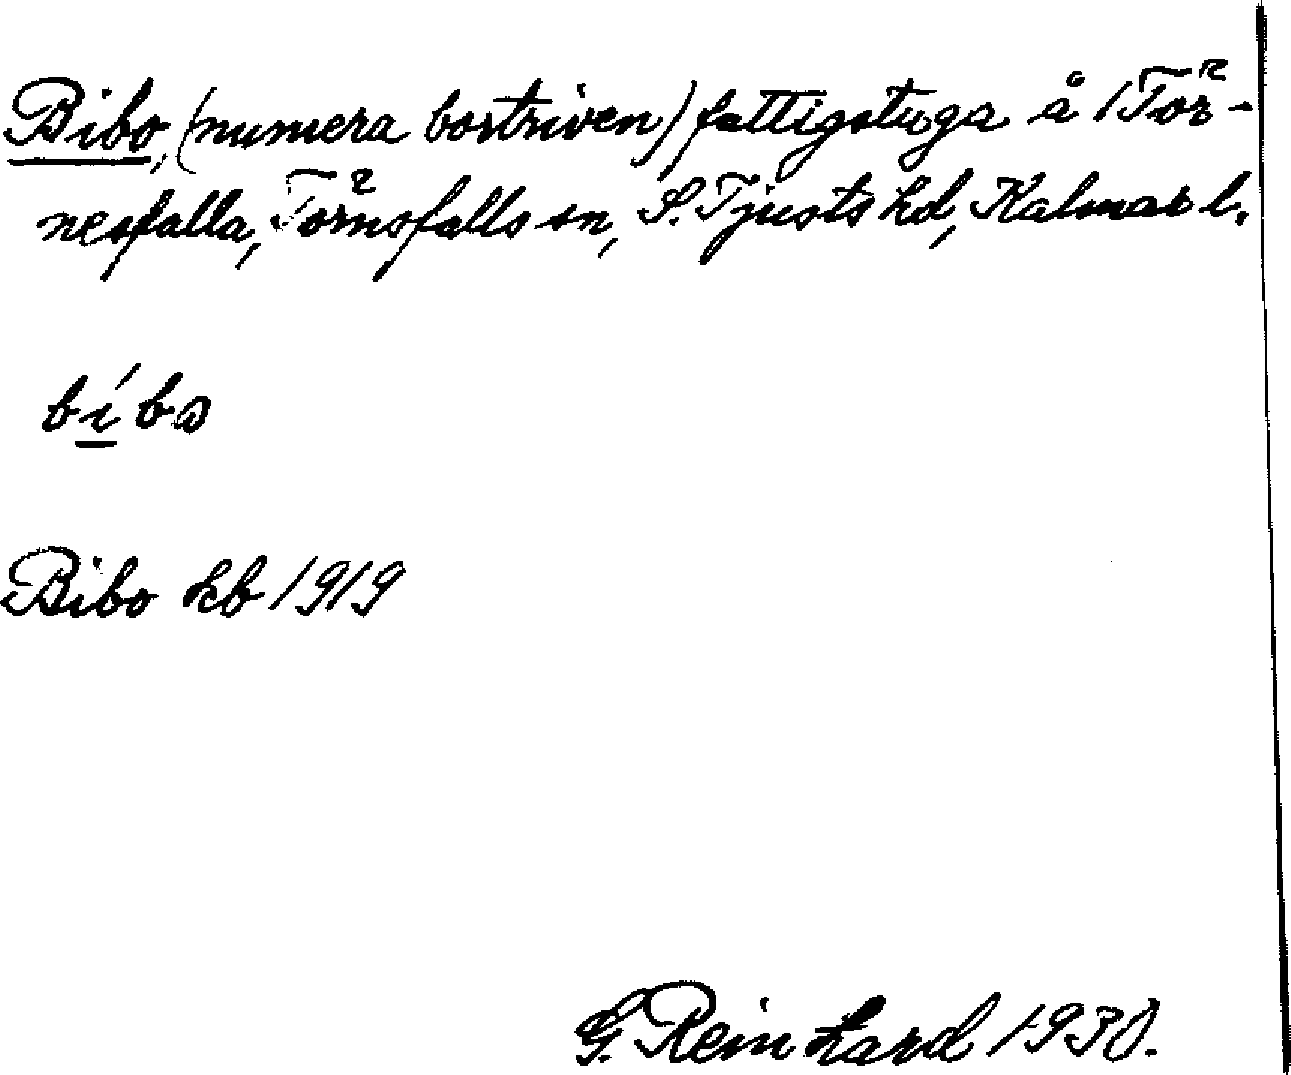 Bibo, (numera bortriven) fattigstuga å 1 Tör-
nesfalla, Törnsfalls sn, S. Tjusts hd, Kalmar l.
bíbo
Bibo kb 1919
G. Reinhard 1930.